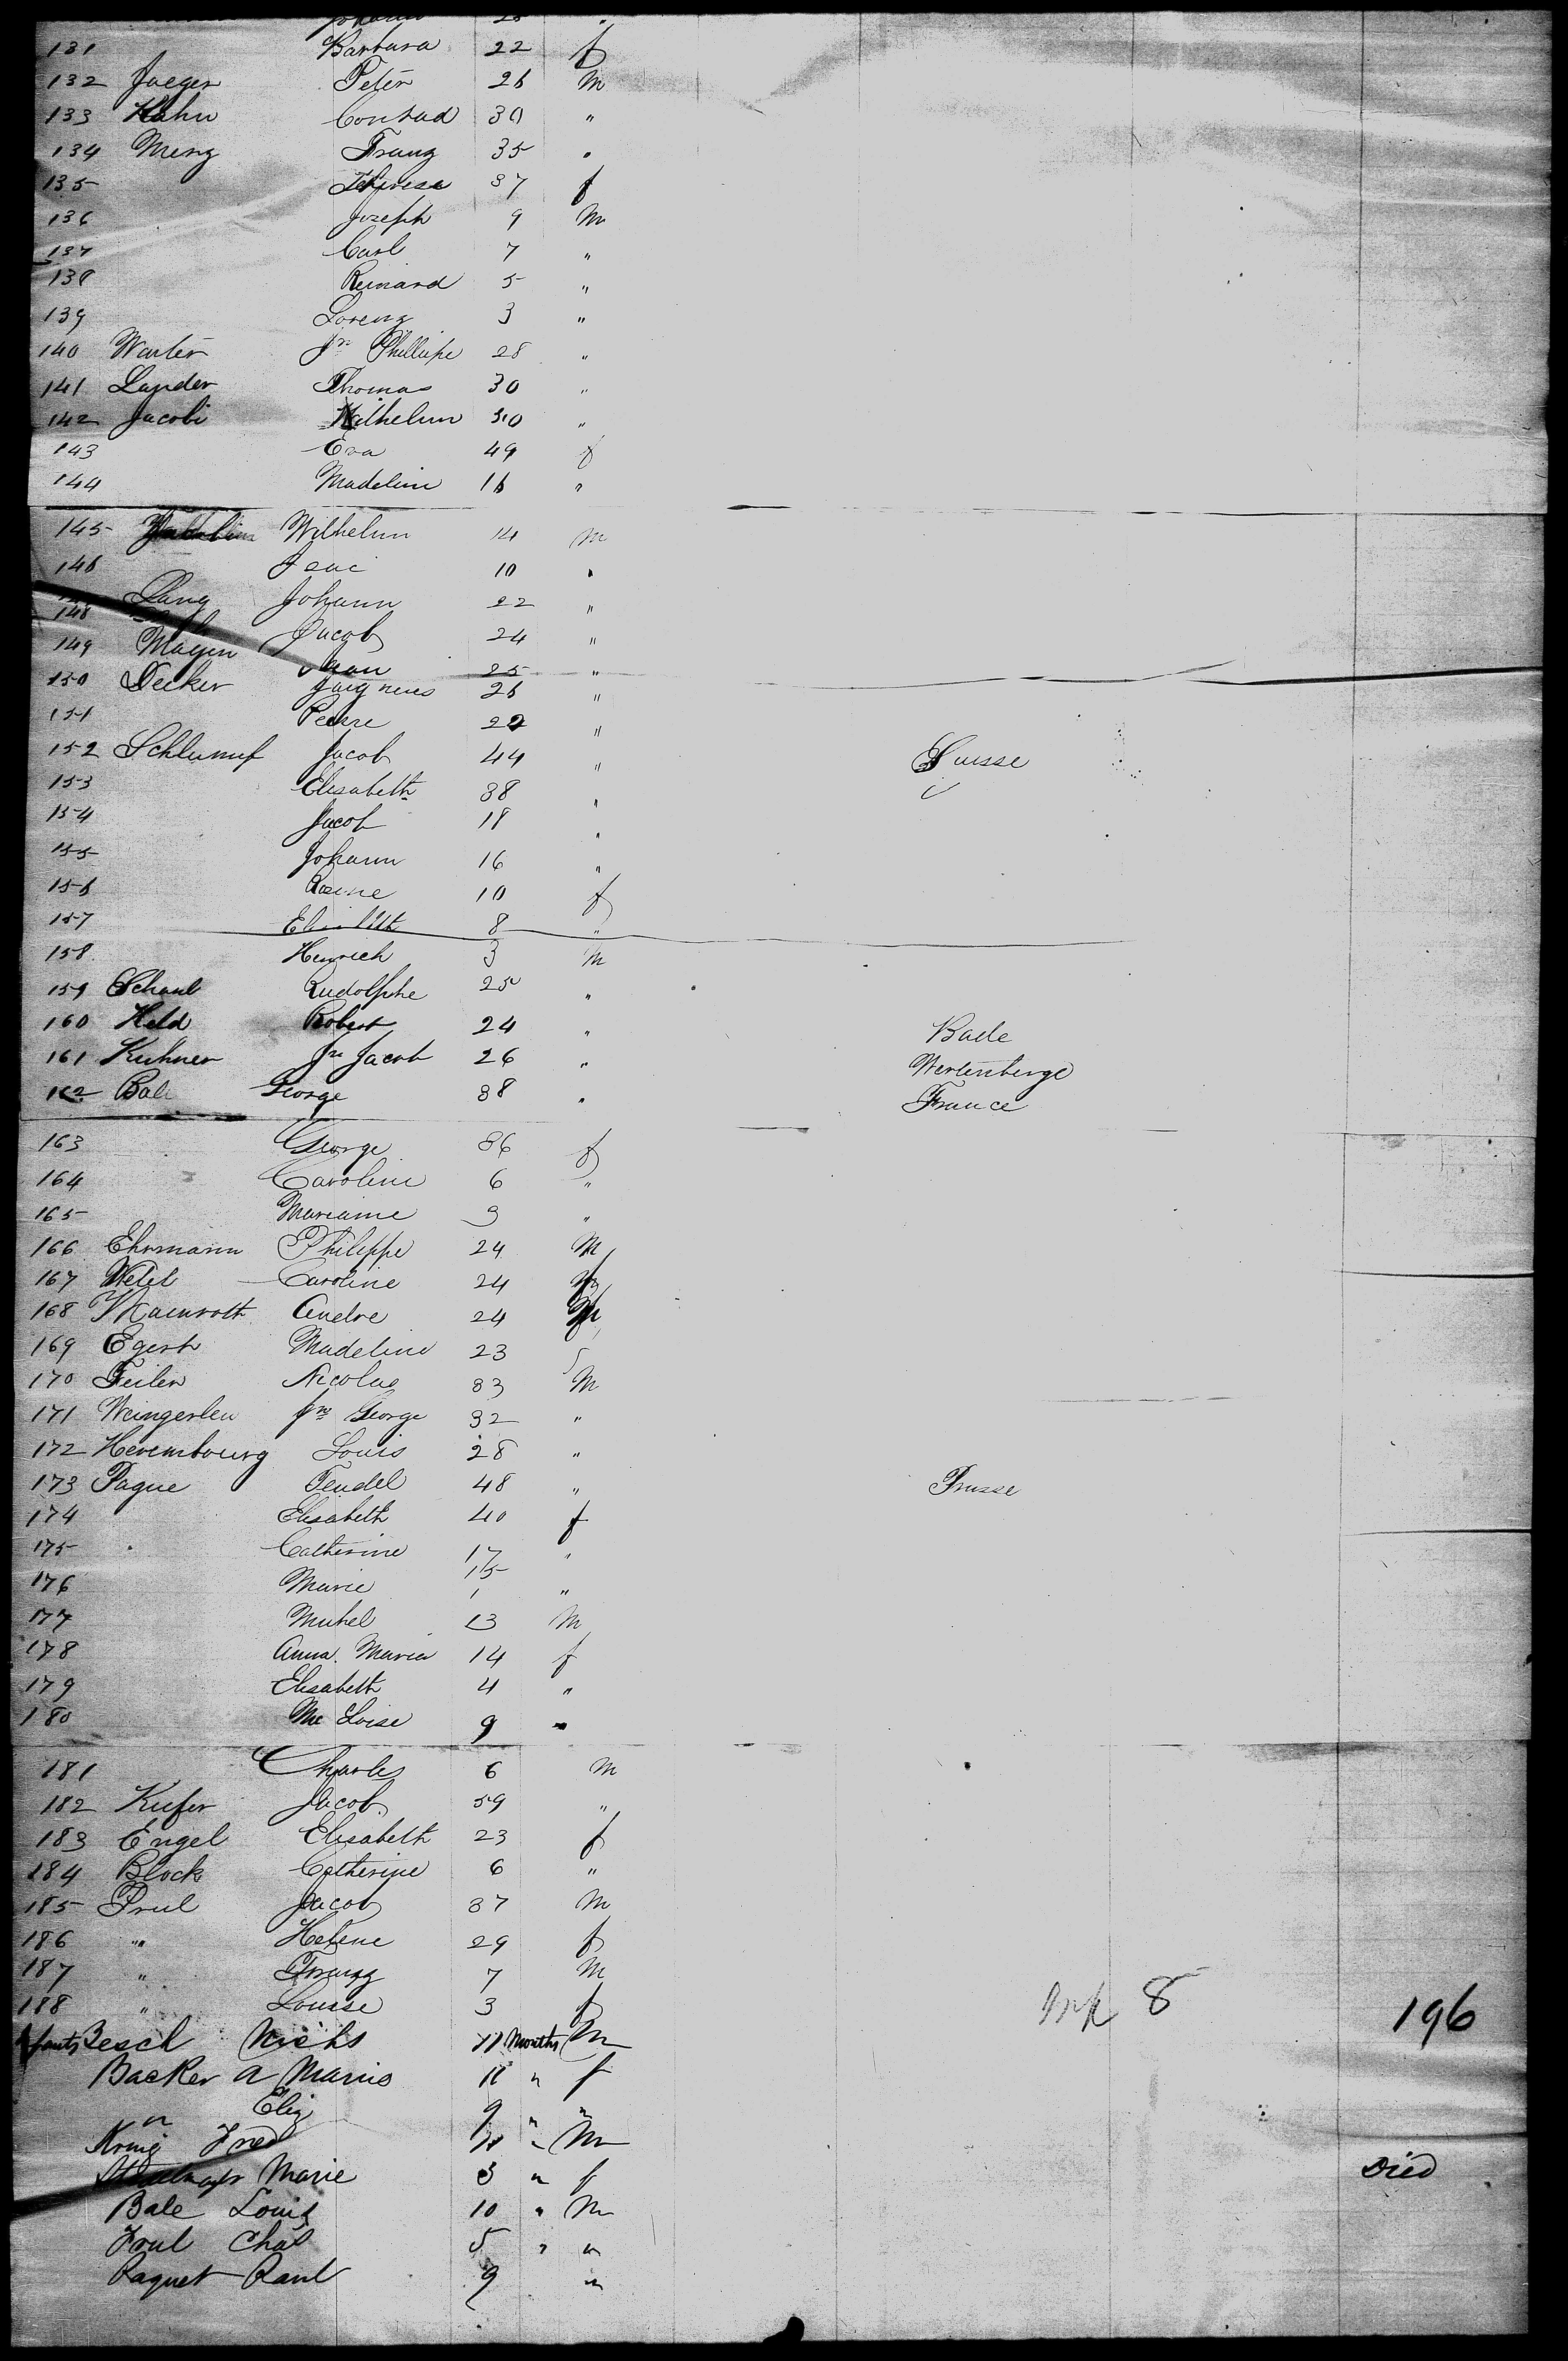 Johann 28 "
131 Barbara 22 f
132 Jaeger Peter 26 M
133 Hahn Conrad 30 "
134 Meng Franz 35 "
135 Theresa 37 f
136 Joseph 9 M
137 Carl 7 "
138 Reinard 5 "
139 Lorenz 3 "
140 Warter Jn Phillipe 28 "
141 Lander Thomas 30 "
142 Jacobi Wilhelm 50 "
143 Eva 49 f
144 Madeline 16 "
145 Wilhelm 14 M
146 Isaic 10 "
Lang Johann 22 "
148 Jacob 24 "
149 Mayen Jean 25 "
150 Decker 26 "
151 Pierre 22 "
152 Schlumpf Jacob 44 " Suisse
153 Elisabeth 38 "
154 Jacob 18 "
155 Johann 16 "
156 10 f
157 Elisabeth 8 "
158 Henrich 3 M
159 Schaub Rudolphe 25 "
160 Held Robert 24 " Bade
161 Kuhner Jn Jacob 26 " Wertenberge
162 Bale George 38 " France
163 George 36 f
164 Caroline 6 "
165 Marianne 3 "
166 Ehrmann Philippe 24 M
167 Caroline 24 f
168 Mainroth Andre 24 M
169 Egert Madeline 23 f
170 Feiler Nicolas 33 M
171 Weingerlen Jn George 32 "
172 Herembourg Louis 28 "
173 Paque Fendel 48 " Prusse
174 Elisabeth 40 f
175 Catherine 17 "
176 Marie 15 "
177 Michel 13 M
178 Anna Maria 14 f
179 Elisabeth 4 "
180 Me Loise 9 "
181 Charles 6 M
182 Kiefer Jacob 59 "
183 Engel Elisabeth 23 f
184 Block Catherine 6 "
185 Prul Jacob 37 M
186 " Helene 29 f
187 " Franz 7 M
188 " Louise 3 f Inf 8 196
Infants Besch Nichs 11 Months M
Backer A Marie 11 " f
" Eliz 9 " "
Krnig Fred 11 " M
Marie 3 " f Died
Bale Louis 10 " M
Prul Chas 5 " "
Paquet Paul 9 "